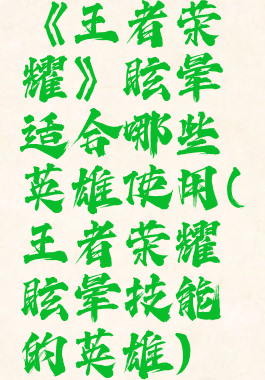 《王者荣
耀》眩晕
适合哪些
英雄使用(
王者荣耀
眩晕技能
的英雄)